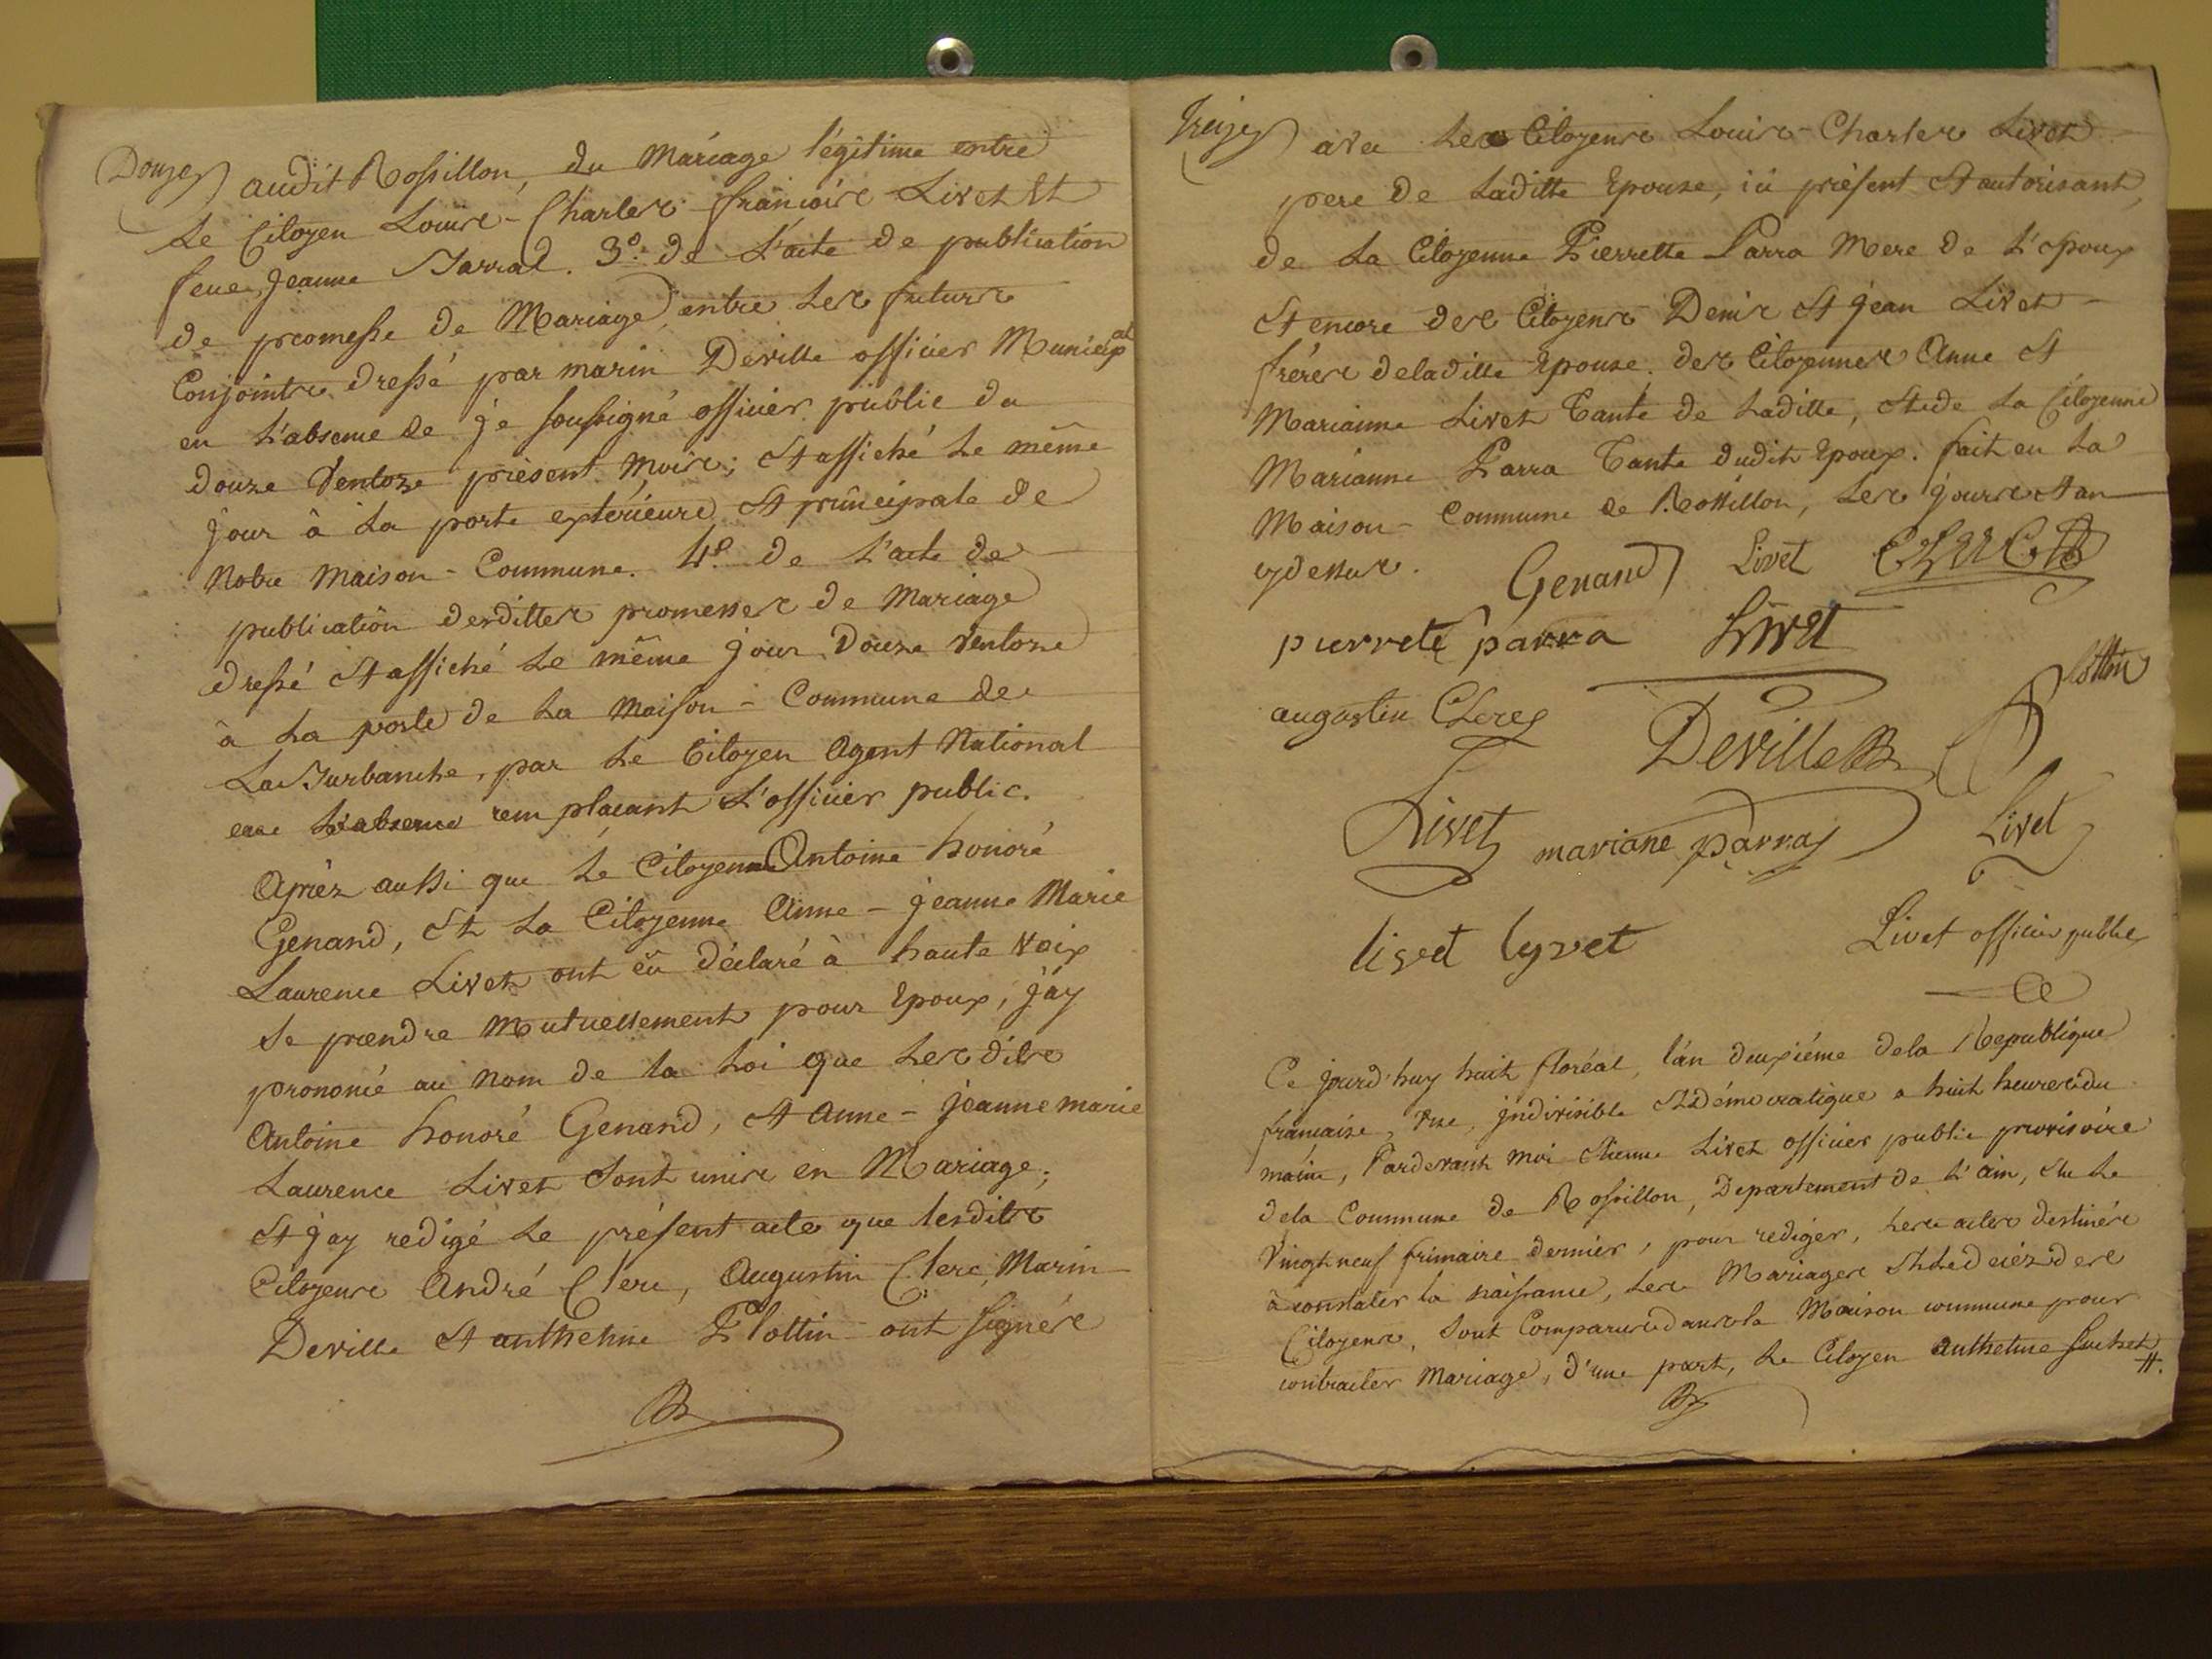 Douze
audit Rossillon, du Mariage légitime entre
Le Citoyen Louis-Charles françois Livet Et
feue Jeanne Jarral. 3º. de L'acte de publication
de promesse de Mariage entre Les futurs
Conjoints dressé par marin Deville officier Municipal
en L'absence de je soussigné officier public du
douze Ventoze présent mois; Et affiché Le même
jour à La porte extérieure Et principale de
Notre Maison-Commune. 4º. de L'acte de
publication desdittes promesses de Mariage
dressé Et affiché Le même jour Douze Ventose
à La porte de La Maison-Commune de
La Burbanche, par Le Citoyen Agent National
L'absence remplaçant L'officier public.
Après aussi que Le Citoyen Antoine honoré
Genand, Et La Citoyenne Anne-jeanne Marie
Laurence Livet ont eû déclaré à haute Voix
Se prendre Mutuellement pour Epoux, j'ay
prononcé au Nom de la Loi que Les dits
Antoine honoré Genand, Et Anne-jeanne marie
Laurence Livet Sont unis en Mariage;
Et j'ay redigé Le présent acte que lesdits
Citoyens André Clerc, Augustin Clerc, Marin
Deville Et anthelme Plottin ont signés
Treize
avec Les Citoyens Louis-Charles Livet
pere de Laditte Epouse, ici présent Et autorisant,
de La Citoyenne Pierrette Parra Mere de L'epoux
Et encore des Citoyens Denis Et jean Livet
frères de laditte Epouse. des Citoyennes Anne Et
Marianne Livet Tante de Laditte, Et de La Citoyenne
Marianne Parra Tante dudit Epoux. fait en La
Maison-Commune de Rossillon, Les jours Et an
cy dessus.
Genand Livet CLERC
pierrete parra Livet
augustin Clerc Deville Plottin
Livet mariane parra Livet
livet lyvet Livet officier public
Ce jourd'huy huit floréal, l'an deuxiéme de la Republique
française, Une, jndivisible Et démocratique a huit heures du
matin, Pardevant moi Etienne Livet officier public provisoire
de la Commune de Rossillon, Département de L'ain, Elu Le
Vingt neuf frimaire dernier, pour rediger, Les actes destinés
à constater la naissance, Les Mariages Et Le décéz des
Citoyens, Sont Comparus dans la Maison commune pour
contracter Mariage, d'une part, Le Citoyen Anthelme Suchet #.